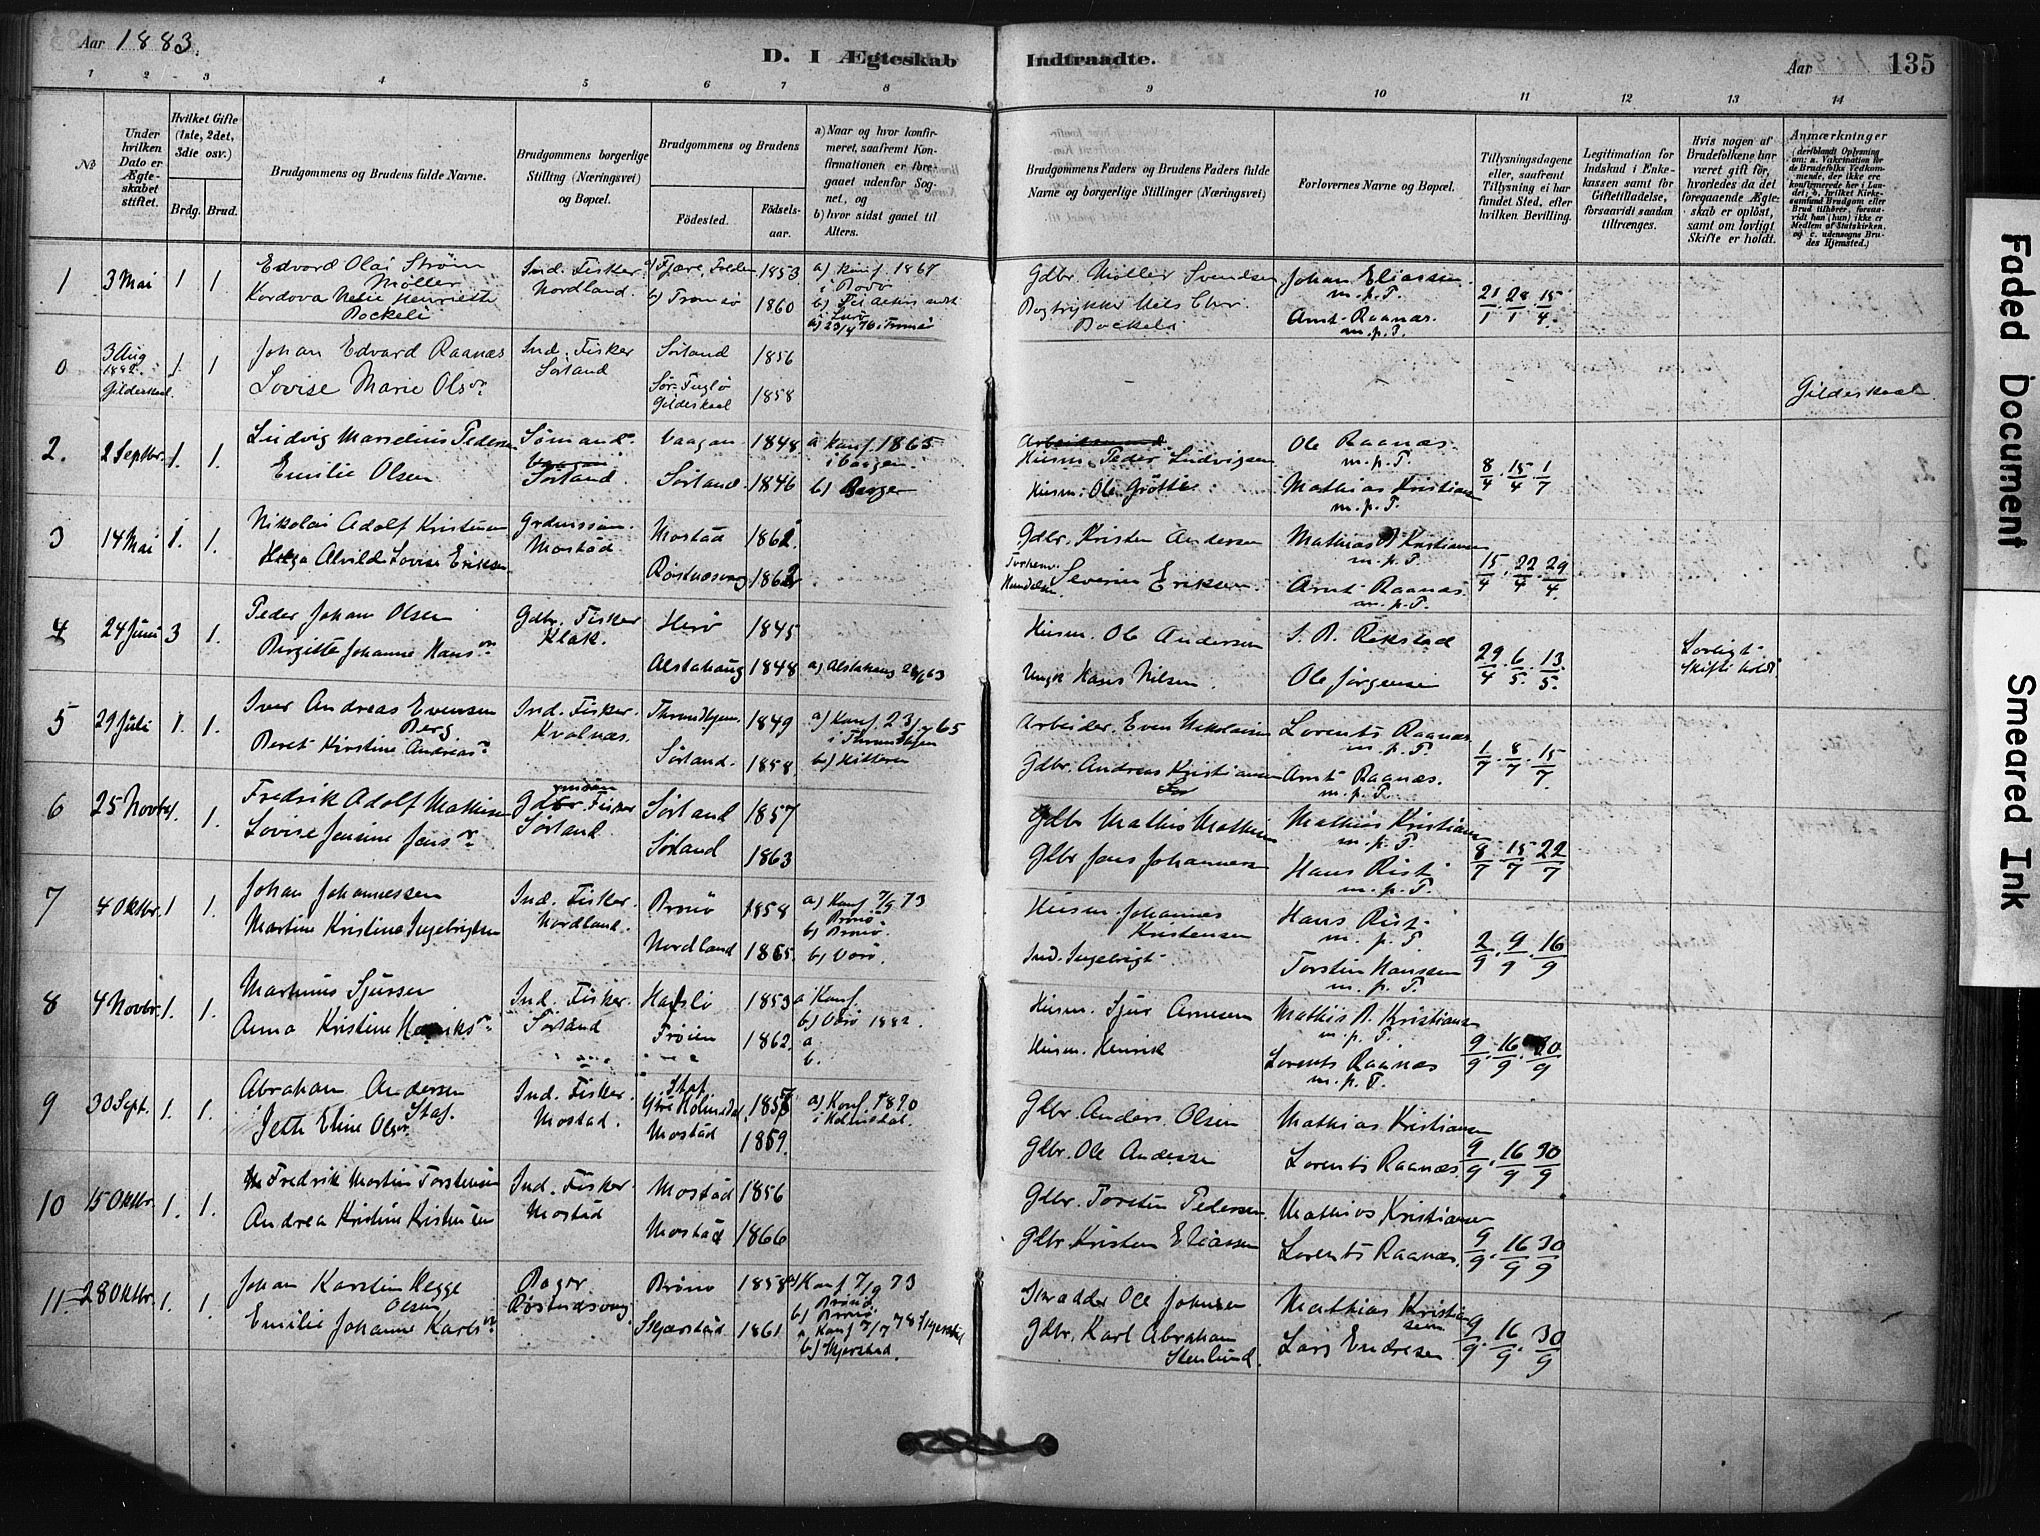 Aar 1883.
D. I Ægteskab Indtraadte.
Aar 135
1 2 3 4 5 6 7 8 9 10 11 12 13 14
No
Under hvilken Dato er Ægteskabet stiftet.
Hvilket Gifte (1ste, 2det, 3die osv.)
Brdg. Brud.
Brudgommens og Brudens fulde Navne.
Brudgommens borgerlige Stilling (Næringsvei) og Bopæl.
Brudgommens og Brudens
Födested. Födselsaar.
a) Naar og hvor konfirmeret, saafremt Konfirmationen er foregaaet udenfor Sognet, og
b) hvor sidst gaaet til Alters.
Brudgommens Faders og Brudens Faders fulde Navne og borgerlige Stillinger (Næringsvei)
Forlovernes Navne og Bopæl.
Tillysningsdagene eller, saafremt Tillysning ei har fundet Sted, efter hvilken Bevilling.
Legitimation for Indskud i Enkekassen samt for Giftetilladelse, forsaavidt saadan tiltrænges.
Hvis nogen af Brudefolkene har været gift før, hvorledes da det foregaaende Ægteskab er oplöst, samt om lovligt Skifte er holdt.
Anmærkninger
(deriblandt Oplysning om: a. Vakcination for de Brudefolks Vedkommende, der ikke ere konfirmerede her i Landet; b. hvilket Kirkesamfund Brudgom eller Brud tilhörer, forsaavidt han (hun) ikke er Medlem af Statskirken, og c. udensogns Brudes Hjemsted.)
1 3 Mai 1 1 Edvard Olai Strøm Møller Ind. Fisker Nordland. 1853 a) konf. 1867 i Bodø Gdbr. Møller Svendsen Johan Eliassen m.p.P. 21/1 . 28/1 . 15/4
Kordova Henriette b) Tromsø 1860 Bogtrykker Arnt Raanæs. m.p.P.
0 3 Aug 1882. Gildeskaal. 1. 1 Johan Edvard Raanæs Ind. Fisker Sørland Sørland 1856
Lovise Marie Olsdr. Sør-Fuglø Gildeskaal 1858 Gildeskaal
2. 2 Septbr. 1. 1. Ludvig Marselius Pedersen Sømand. Sørland. Vaagan. 1848. a konf. 1865 Husm. Peder Ludvigsen Ole Raanæs. m.p.P. 8/4 . 15/4 . 1/7
Emilie Olsen Sørland. 1846 Husm. Ole Grøtte. Mathias Kristiansen m.p.P.
3 14 Mai 1. 1. Nikolai Adolf Kristensen Mostad. Mostad 1862. Gdbr. Kristen Andersen Mathias B Kristiansen m.p.P. 15/4 . 22/4 . 29/4.
Helga Alvilde Lovise Eriksen. Røstnæsvaag 1862 Severin Eriksen. Arnt Raanæs. m.p.P.
4 24 Juni 3 1. Peder Johan Olsen Gdbr. Fisker Klak. Herø 1845 Husm. Ole Andersen S. B. Rekstad 29/4 . 6/5 . 13/5. Lovligt Skifte holdt.
Birgitte Johanne Hansdr. Alstahaug 1848 a) Alstahaug Ungk Hans Nilsen. Ole Jørgensen
5 29 Juli 1. 1. Iver Andreas Evensen Berg. Ind. Fisker. Kvalnæs. Throndhjem. 1849 a) Konf. 23/4 65 i Throndhjem Arbeider. Even Nikolaisen Lorents Raanæs m.p.P. 1/7 . 8/7 . 15/7
Beret Kirstine Andreasdr. Sørland. 1858. b) Hitteren Gdbr. Andreas Kristiansen Arnt Raanæs. m.p.P.
6 25 Novbr 1. 1. Fredrik Adolf Mathisen Fisker Sørland. Sørland 1857 Gdbr Mathis Mathisen Mathias Kristiansen m.p.P. 8/7 . 15/7 . 22/7
Lovise Jensine Jensdr. Sørland 1863 Glbr Jens Johannesen Hans Rist m.p.P.
7 4 Oktbr. 1 1. Johan Johannessen Ind. Fisker. Nordland. Brønø 1858 a) Konf 7/9 73 Brønø. b) Brønø. Husm. Johannes Kristensen Hans Rist m.p.P. 2/9 . 9/9 . 16/9
Martine Kristine Ingebrigtsen Nordland 1865. b) Værø. Ind. Ingebrigt Torstein Hanssen m.p.P.
8 4 Novbr. 1. 1. Martinus Sjursen Ind. Fisker. Sørland Hafslo 1853 a Konf. b) Værø 1882. Husm. Sjur Arnesen Mathis B. Kristiansen m.p.P. 9/9 . 16/9 . 30/9
Anna Kristine Henriksdr. Frøien 1862. a b. Husm. Henrik Lorents Raanæs m.p.P.
9 30 Sept. 1. 1. Abraham Andersen Staf. Ind. Fisker. Mostad. 1857 a) Konf. 1870 Glbr. Anders Olsen Mathias Kristiansen 9/9 . 16/9 . 30/9
Jette Eline Olsdr Mostad 1859. Glbr. Ole Andersen Lorents Raanæs.
10 15 Oktbr. 1. 1. Fredrik Martin Torstensen Ind. Fisker. Mostad Mostad 1856 Glbr. Torstin Pedersen. Mathias Kristiansen 9/9 . 16/9 . 30/9
Andrea Kristine Kristensen Mostad 1866 Glbr. Kristen Eliassen Lorents Raanæs.
11. 28 Oktbr. 1. 1. Johan Karstin Hegge Olsen Bager Røstnæsvaag Brønø 1858 a) Konf 7/9 73 Brønø. b) Brønø Skrædder Ole Johnsen Mathias Kristiansen 9/9 . 16/9 . 30/9
Emilie Johanne Karlsdr. Skjærstad 1861 a, Konf 7/7 78 b) Skjerstad. Gdbr. Karl Abraham Stenlund. Lars Endresen
Faded Document
Smeared Ink